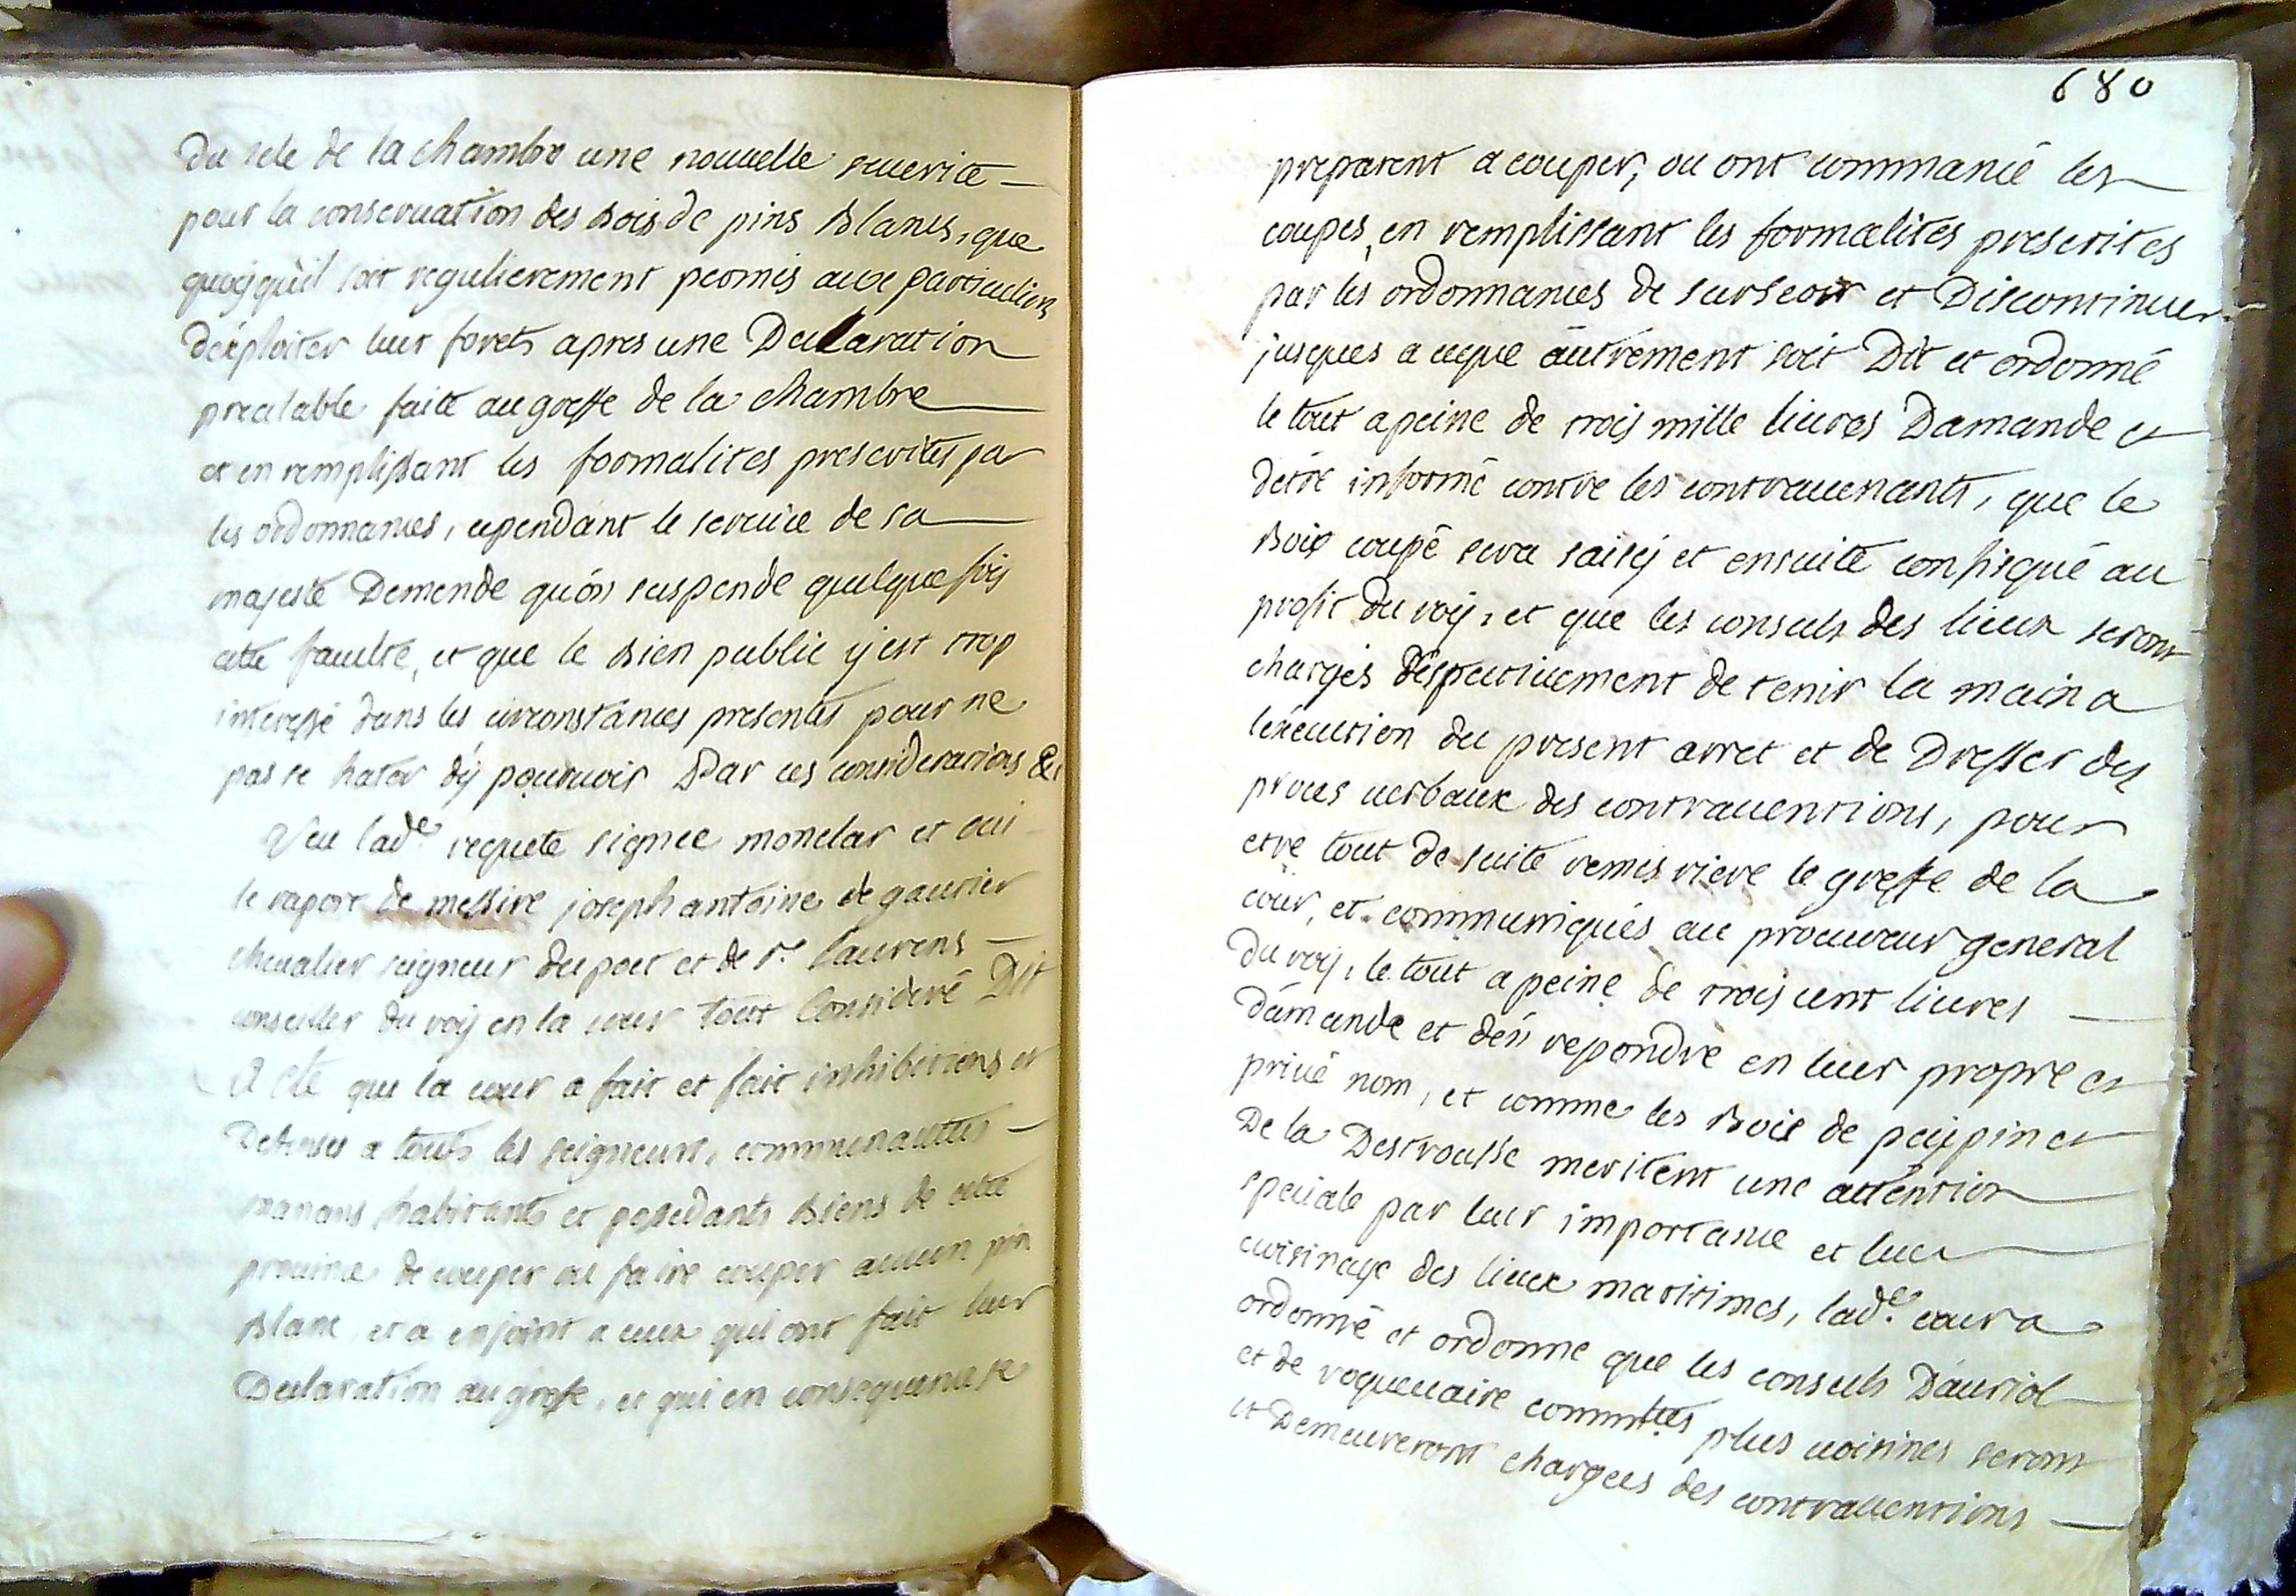 du sele de la chambre une nouvelle severite
pour la conservation des Bois de pins Blancs, que
quoÿqu'il soit regulierement permis aux particuliers
d'exploiter leur forets apres une Declaration
prealable faite au greffe de la chambre
et en remplissant les formalites prescrites par
les ordonnances, cependant le service de sa
majesté Demende qu'on suspende quelque fois
cette faculté, et que le Bien public ÿ est trop
interessé dans les circonstances presentes pour ne
pas se hater d'ÿ pourvoir Par ces considerations &c
Veu lad.e requete signee monclar et oui
le raport de messire joseph antoine de gautier
chevalier seigneur du poet et de s.t Laurens
conseiller du roÿ en la cour tout Consideré Dit
A eté que la cour a fait et fait inhibitions et
Defenses a touts les seigneurs, communautés
manans habitants et possedants Biens de cette
province de couper ou faire couper aucun pin
Blanc, et a enjoint a ceux qui ont fait leur
Declaration au greffe, et qui en consequence se
680
preparent a couper, ou ont commancé les
coupes, en remplissant les formalites prescrites
par les ordonnances de surseoir et Discontinuer
jusques a ceque autrement soit Dit et ordonné
le tout a peine de trois mille livres Damande et
d'etre informé contre les contrevenants, que le
Bois coupé sera saisÿ et ensuite confisqué au
profit du roÿ, et que les consuls des lieux seront
chargés respectivement de tenir la main a
l'execution du present arret et de Dresser des
proces verbaux des contraventions, pour
etre tout de suite remis riere le greffe de la
cour, et communiqués au procureur general
du roÿ, le tout a peine de trois cent livres
d'amande et d'en repondre en leur propre et
privé nom, et comme les Bois de peÿpin et
De la Destrousse meritent une attention
speciale par leur importance et leur
voisinage des lieux maritimes, lad.e cour a
ordonné et ordonne que les consuls D'auriol
et de roquevaire commtés plus voisines seront
et Demeureront chargees des contraventions